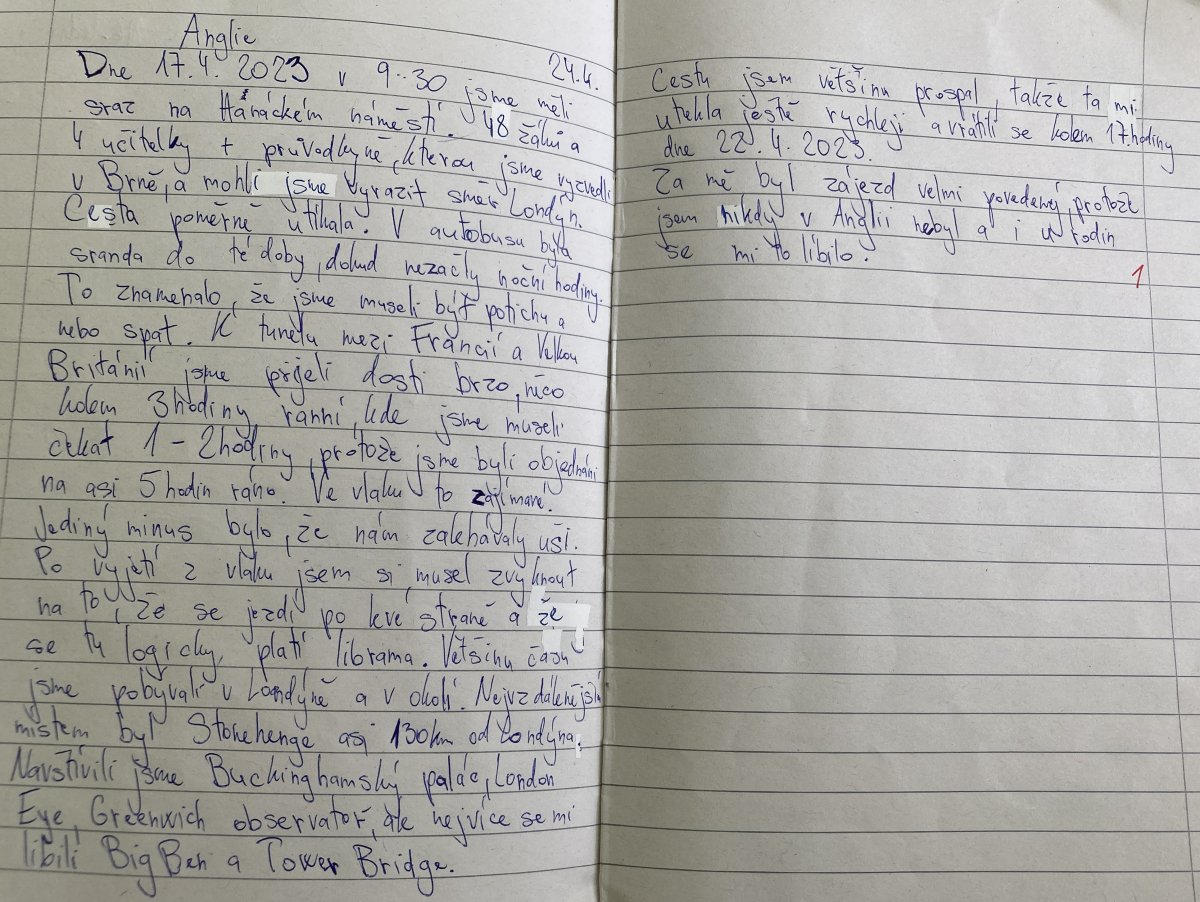 Anglie
24.4.
Dne 17.4. 2023 v 9:30 jsme měli
sraz na Hánáckém náměstí. 48 žáků a
4 učitelky + průvodkyně, kterou jsme vyzvedli
v Brně, a mohli jsme vyrazit směr Londýn.
Cesta poměrně utíkala. V autobusu byla
sranda do té doby, dokud nezačly noční hodiny.
To znamenalo, že jsme museli být potichu a
nebo spát. K tunelu mezi Francií a Velkou
Británií jsme přijeli dosti brzo, něco
kolem 3 hodiny ranní, kde jsme museli
čekat 1 - 2 hodiny, protože jsme byli objednáni
na asi 5 hodin ráno. Ve vlaku to zajímavé.
Jediný minus bylo, že nám zalehávaly uši.
Po vyjetí z vlaku jsem si musel zvyknout
na to, že se jezdí po levé straně a že
se tu logicky, platí librama. Většinu času
jsme pobývali v Londýně a v okolí. Nejvzdálenějším
místem byl Stonehenge asi 130km od Londýna.
Navštívili jsme Buckinghamský palác, London
Eye, Greenwich observatoř, ale nejvíce se mi
líbili Big Ben a Tower Bridge.
Cestu jsem většinu prospal, takže ta mi
utekla ještě rychleji a vrátili se kolem 17.hodiny
dne 22.4. 2023.
Za mě byl zájezd velmi povedený, protože
jsem nikdy v Anglii nebyl a i u rodin
se mi to líbilo.
1